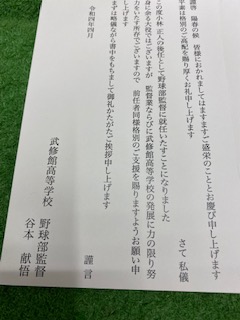 謹啓 陽春の候 皆様におかれましてはますますご盛栄のこととお慶び申し上げます
平素は格別のご高配を賜り厚くお礼申し上げます
さて 私儀
この度小林 正人の後任として野球部監督に就任いたすことになりました
身に余る大役ではございますが 監督業ならびに武修館高等学校の発展に力の限り努
力をいたす所存でございますので 前任者同様格別のご支援を賜りますようお願い申
し上げます
まずは略儀ながら書中をもちまして御礼かたがたご挨拶申し上げます
謹言
令和四年四月
武修館高等学校
野球部監督
谷本 献悟